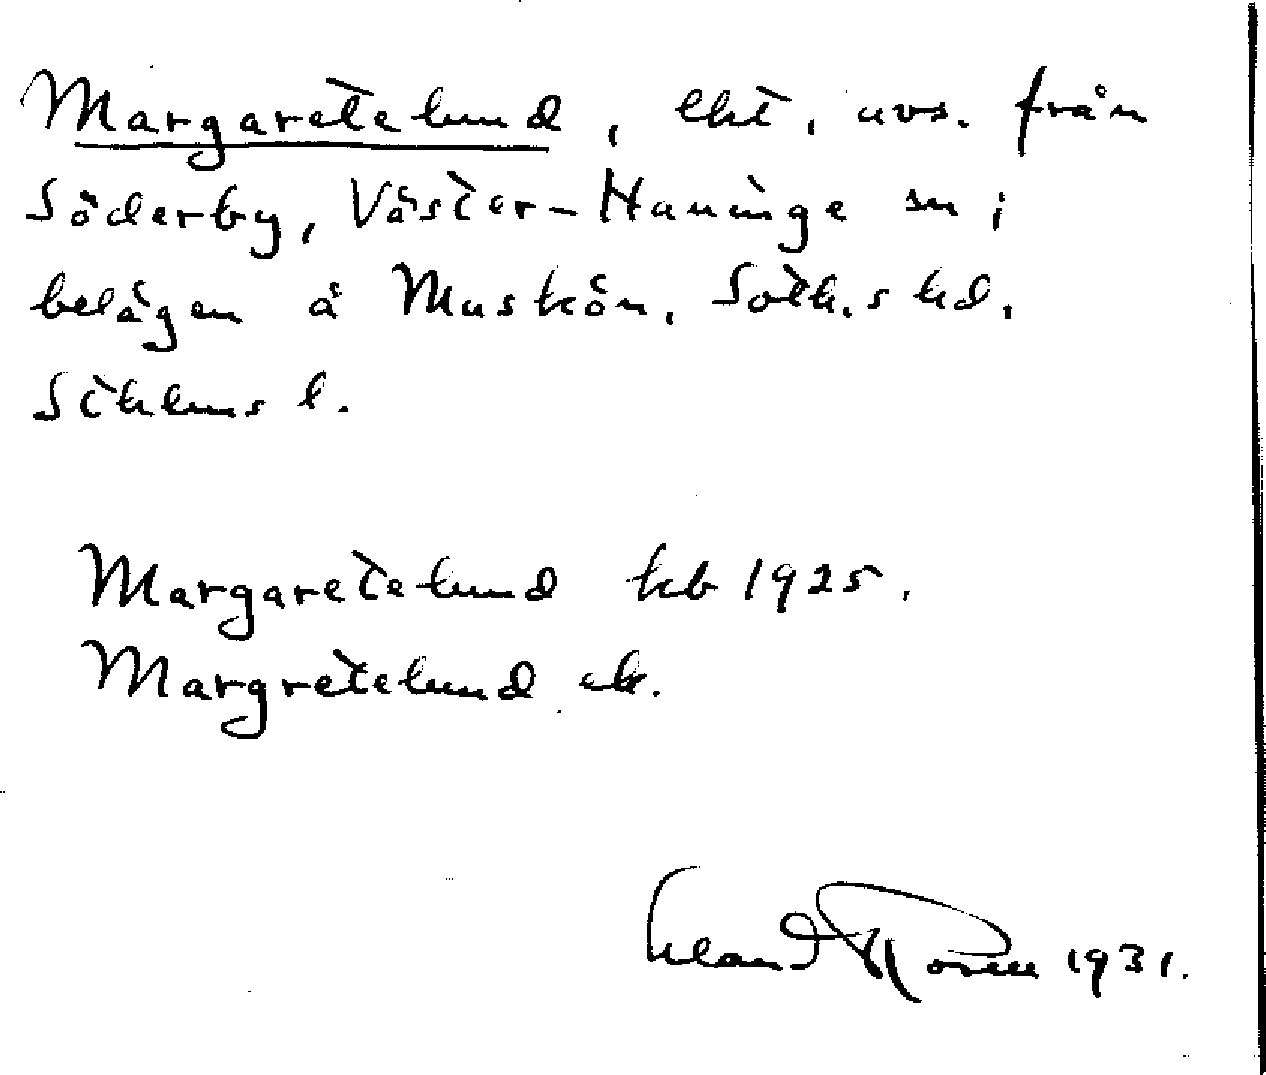 Margaretelund, lht, avs. från
Söderby, Väster-Haninge sn;
belägen å Muskön. Sotk.s hd.
Sthlms l.
Margaretelund kb 1925.
Margretelund ek.
Eland Rosell 1931.